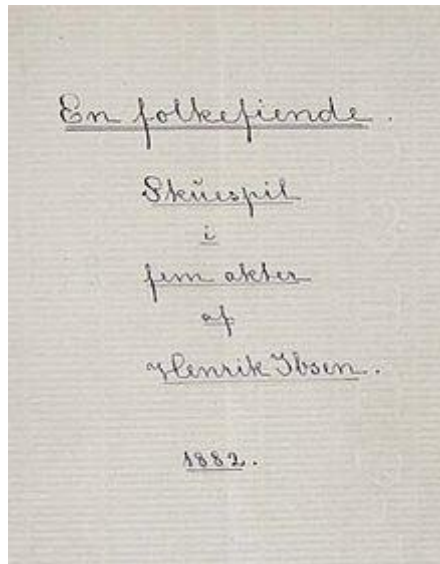 En folkefiende.
Skuespil
i
fem akter
af
Henrik Ibsen.
1882.